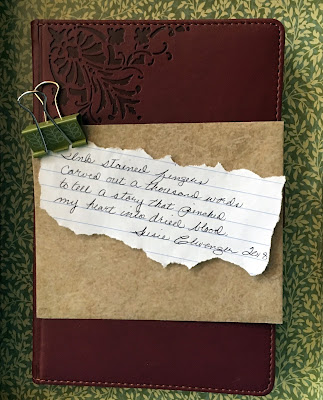 Ink stained fingers
carved out a thousand words
to tell a story that punched
my heart into dried blood.
Susie Clevenger 2018